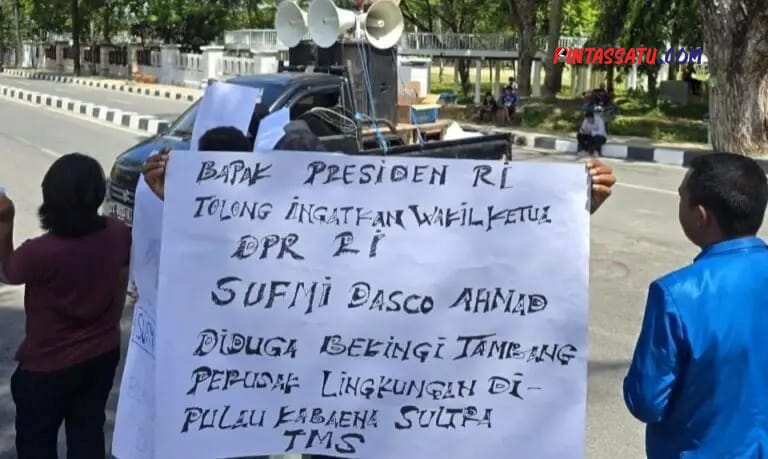 PINTASSATU.COM
BAPAK PRESIDEN RI
TOLONG INGATKAN WAKIL KETUA
DPR RI
SUFMI DASCO AHMAD
DIDUGA BEKINGI TAMBANG
PERUSAK LINGKUNGAN DI-
PULAU KABAENA SULTRA
TMS